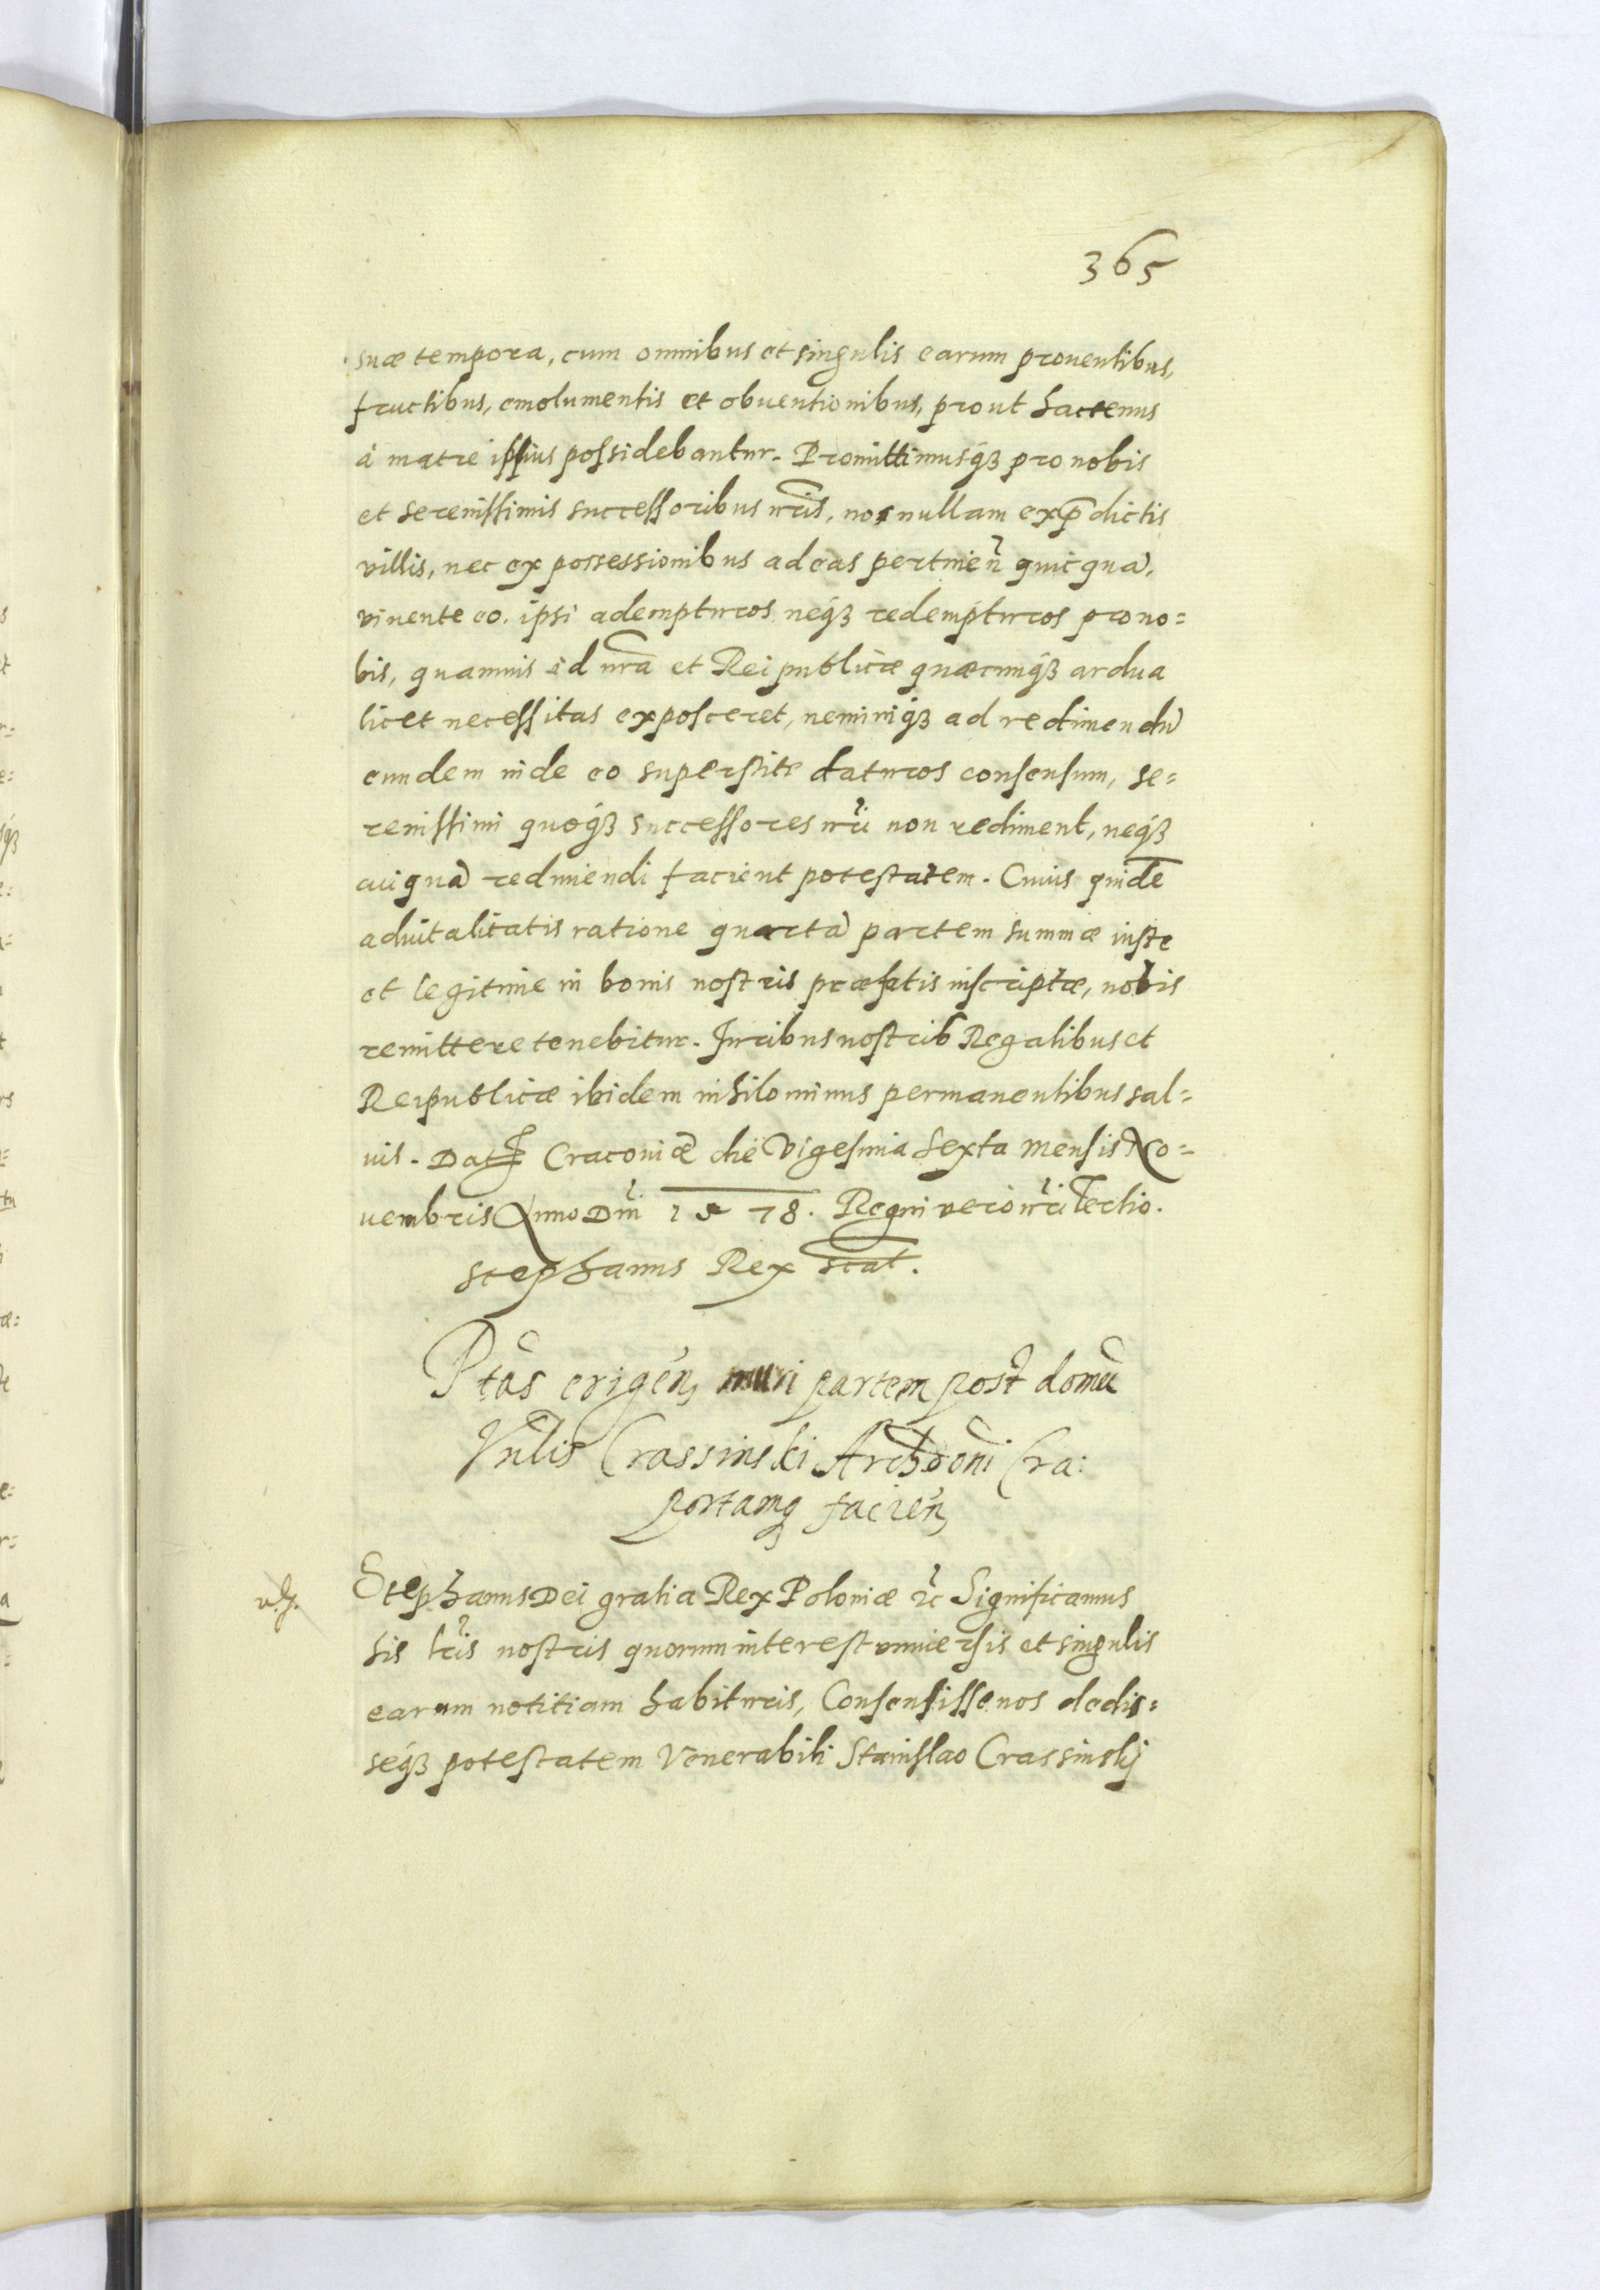 365
suæ tempora, cum omnibus et singulis earum prouentibus,
fructibus, emolumentis et obuentionibus, prout hactenus
à matre ipsius possidebantur. Promittimusq́ꝫ pro nobis
et serenissimis successoribus nr̃is, nos nullam ex p̃dictis
villis, nec ex possessionibus ad eas pertineñ quicquã,
viuente eo, ipsi adempturos neq́ꝫ redempturos pro no=
bis, quamuis id nr̃a et Reipublicæ quæcunq́ꝫ ardua
licet necessitas exposceret, neminiq́ꝫ ad redimendũ
eundem inde eo superstite daturos consensum, se=
renissimi quoq́ꝫ successores nr̃i non rediment, neq́ꝫ
cuiquã redimendi facient potestatem. Cuius quidẽ
aduitalitatis ratione quartã partem summæ iuste
et legitime in bonis nostris præfatis inscriptæ, nobis
remittere tenebitur. Iuribus nostris Regalibus et
Reipublicæ ibidem nihilominus permanentibus sal=
uis. Dat Cracouiæ die Vigesima Sexta Mensis No=
uembris Anno Dñi 1578. Regni vero nr̃i Tertio.
Stephanus Rex sc̃at.
Ptãs erigeñ, muri partem post domũ
Vñlis Crassinski Archdoñi Cra:
portamq facień,
Stephanus Dei gratia Rex Poloniæ ꝛc̃ Significamus
his lr̃is nostris quorum interest vniuersis et singulis
earum notitiam habituris, Consensisse nos dedis=
seq́ꝫ potestatem Venerabili Stanislao Crassinskj